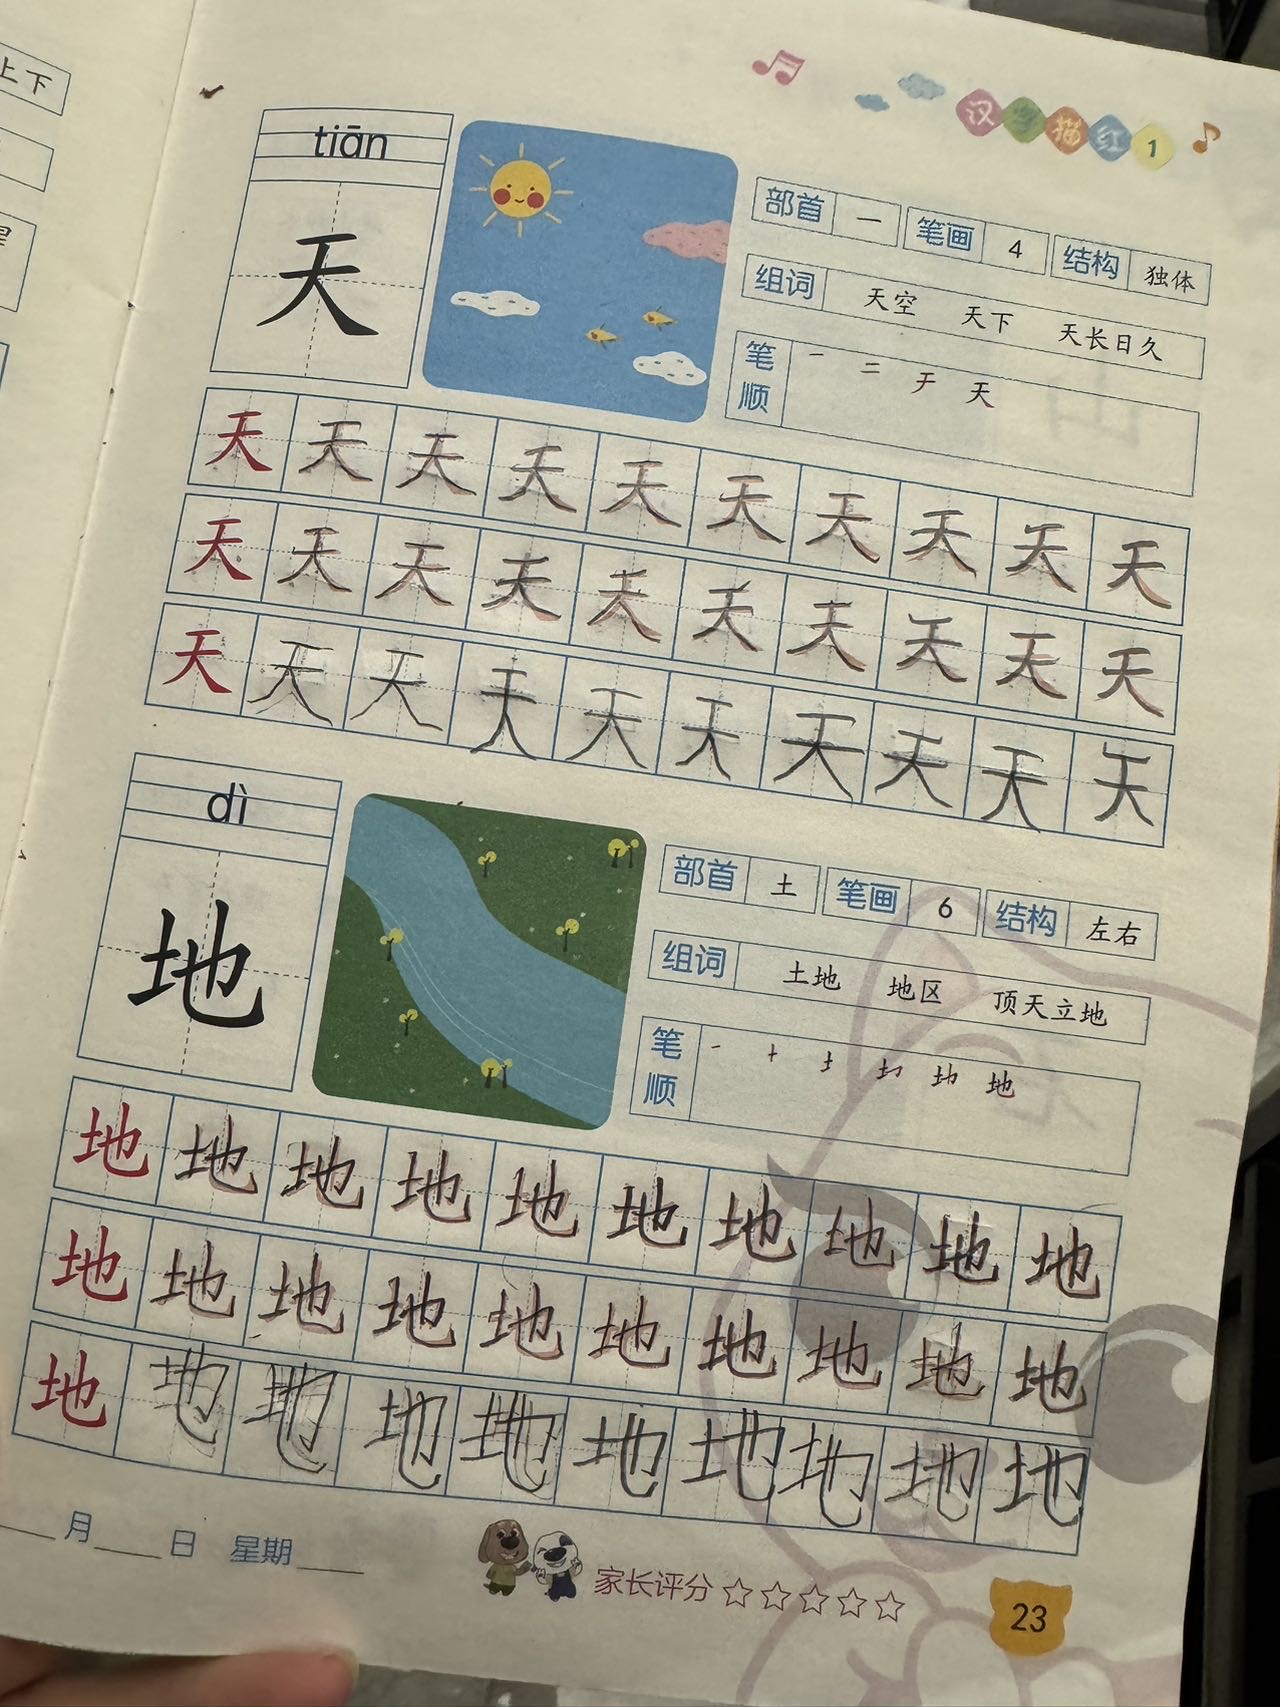 上下
汉字描红1
tiān
天
部首 一 笔画 4 结构 独体
组词 天空 天下 天长日久
笔顺 一 二 于 天
天 天 天 天 天 天 天 天 天 天
天 天 天 天 天 天 天 天 天 天
天 天 天 天 天 天 天 天 天 天
dì
地
部首 土 笔画 6 结构 左右
组词 土地 地区 顶天立地
笔顺 一 十 土 地
地 地 地 地 地 地 地 地 地 地
地 地 地 地 地 地 地 地 地 地
地 地 地 地 地 地 地 地 地 地
月 日 星期
家长评分 ☆☆☆☆☆
23